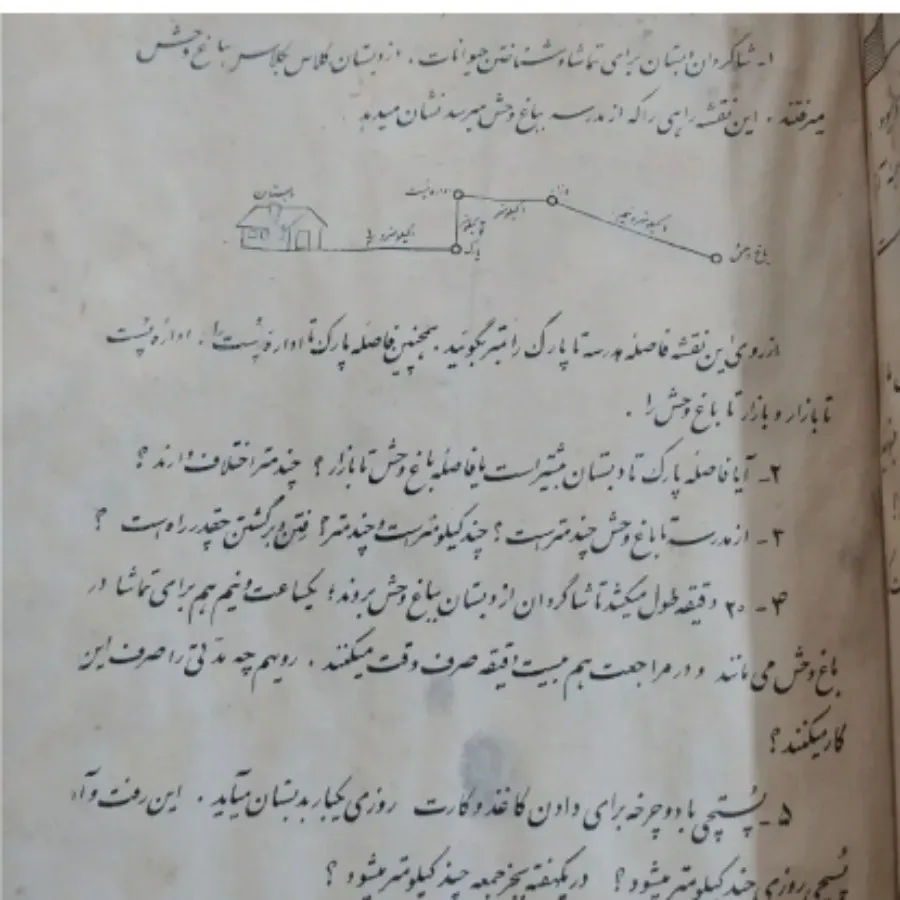 ۱- شاگردان دبستان برای تماشا و شناختن حیوانات، از دبستان کلاس بکلاس بباغ وحش
میرفتند. این نقشه راهی را که از مدرسه بباغ وحش میرسد نشان میدهد
دبستان
اداره پست
بازار
۱ کیلومتر
پارک
باغ وحش
از روی این نقشه فاصله مدرسه تا پارک را بمتر بگوئید. همچنین فاصله پارک تا اداره پُست را، اداره پُست
تا بازار و بازار تا باغ وحش را.
۲- آیا فاصله پارک تا دبستان بیشتر است یا فاصله باغ وحش تا بازار؟ چند متر اختلاف دارند؟
۳- از مدرسه تا باغ وحش چند متر است؟ چند کیلومتر است و چند متر؟ رفتن و برگشتن چقدر راه است؟
۴- ۲۰ دقیقه طول میکشد تا شاگردان از دبستان بباغ وحش بروند؛ یکساعت و نیم هم برای تماشا در
باغ وحش می مانند و در مراجعت هم بیست دقیقه صرف وقت میکنند. رویهم چه مدّتی را صرف این
کار میکنند؟
۵- پُستچی با دوچرخه برای دادن کاغذ و کارت روزی یکبار بدبستان میآید. این رفت و آمد
پُستچی روزی چند کیلومتر میشود؟ در یکهفته بجز جمعه چند کیلومتر میشود؟